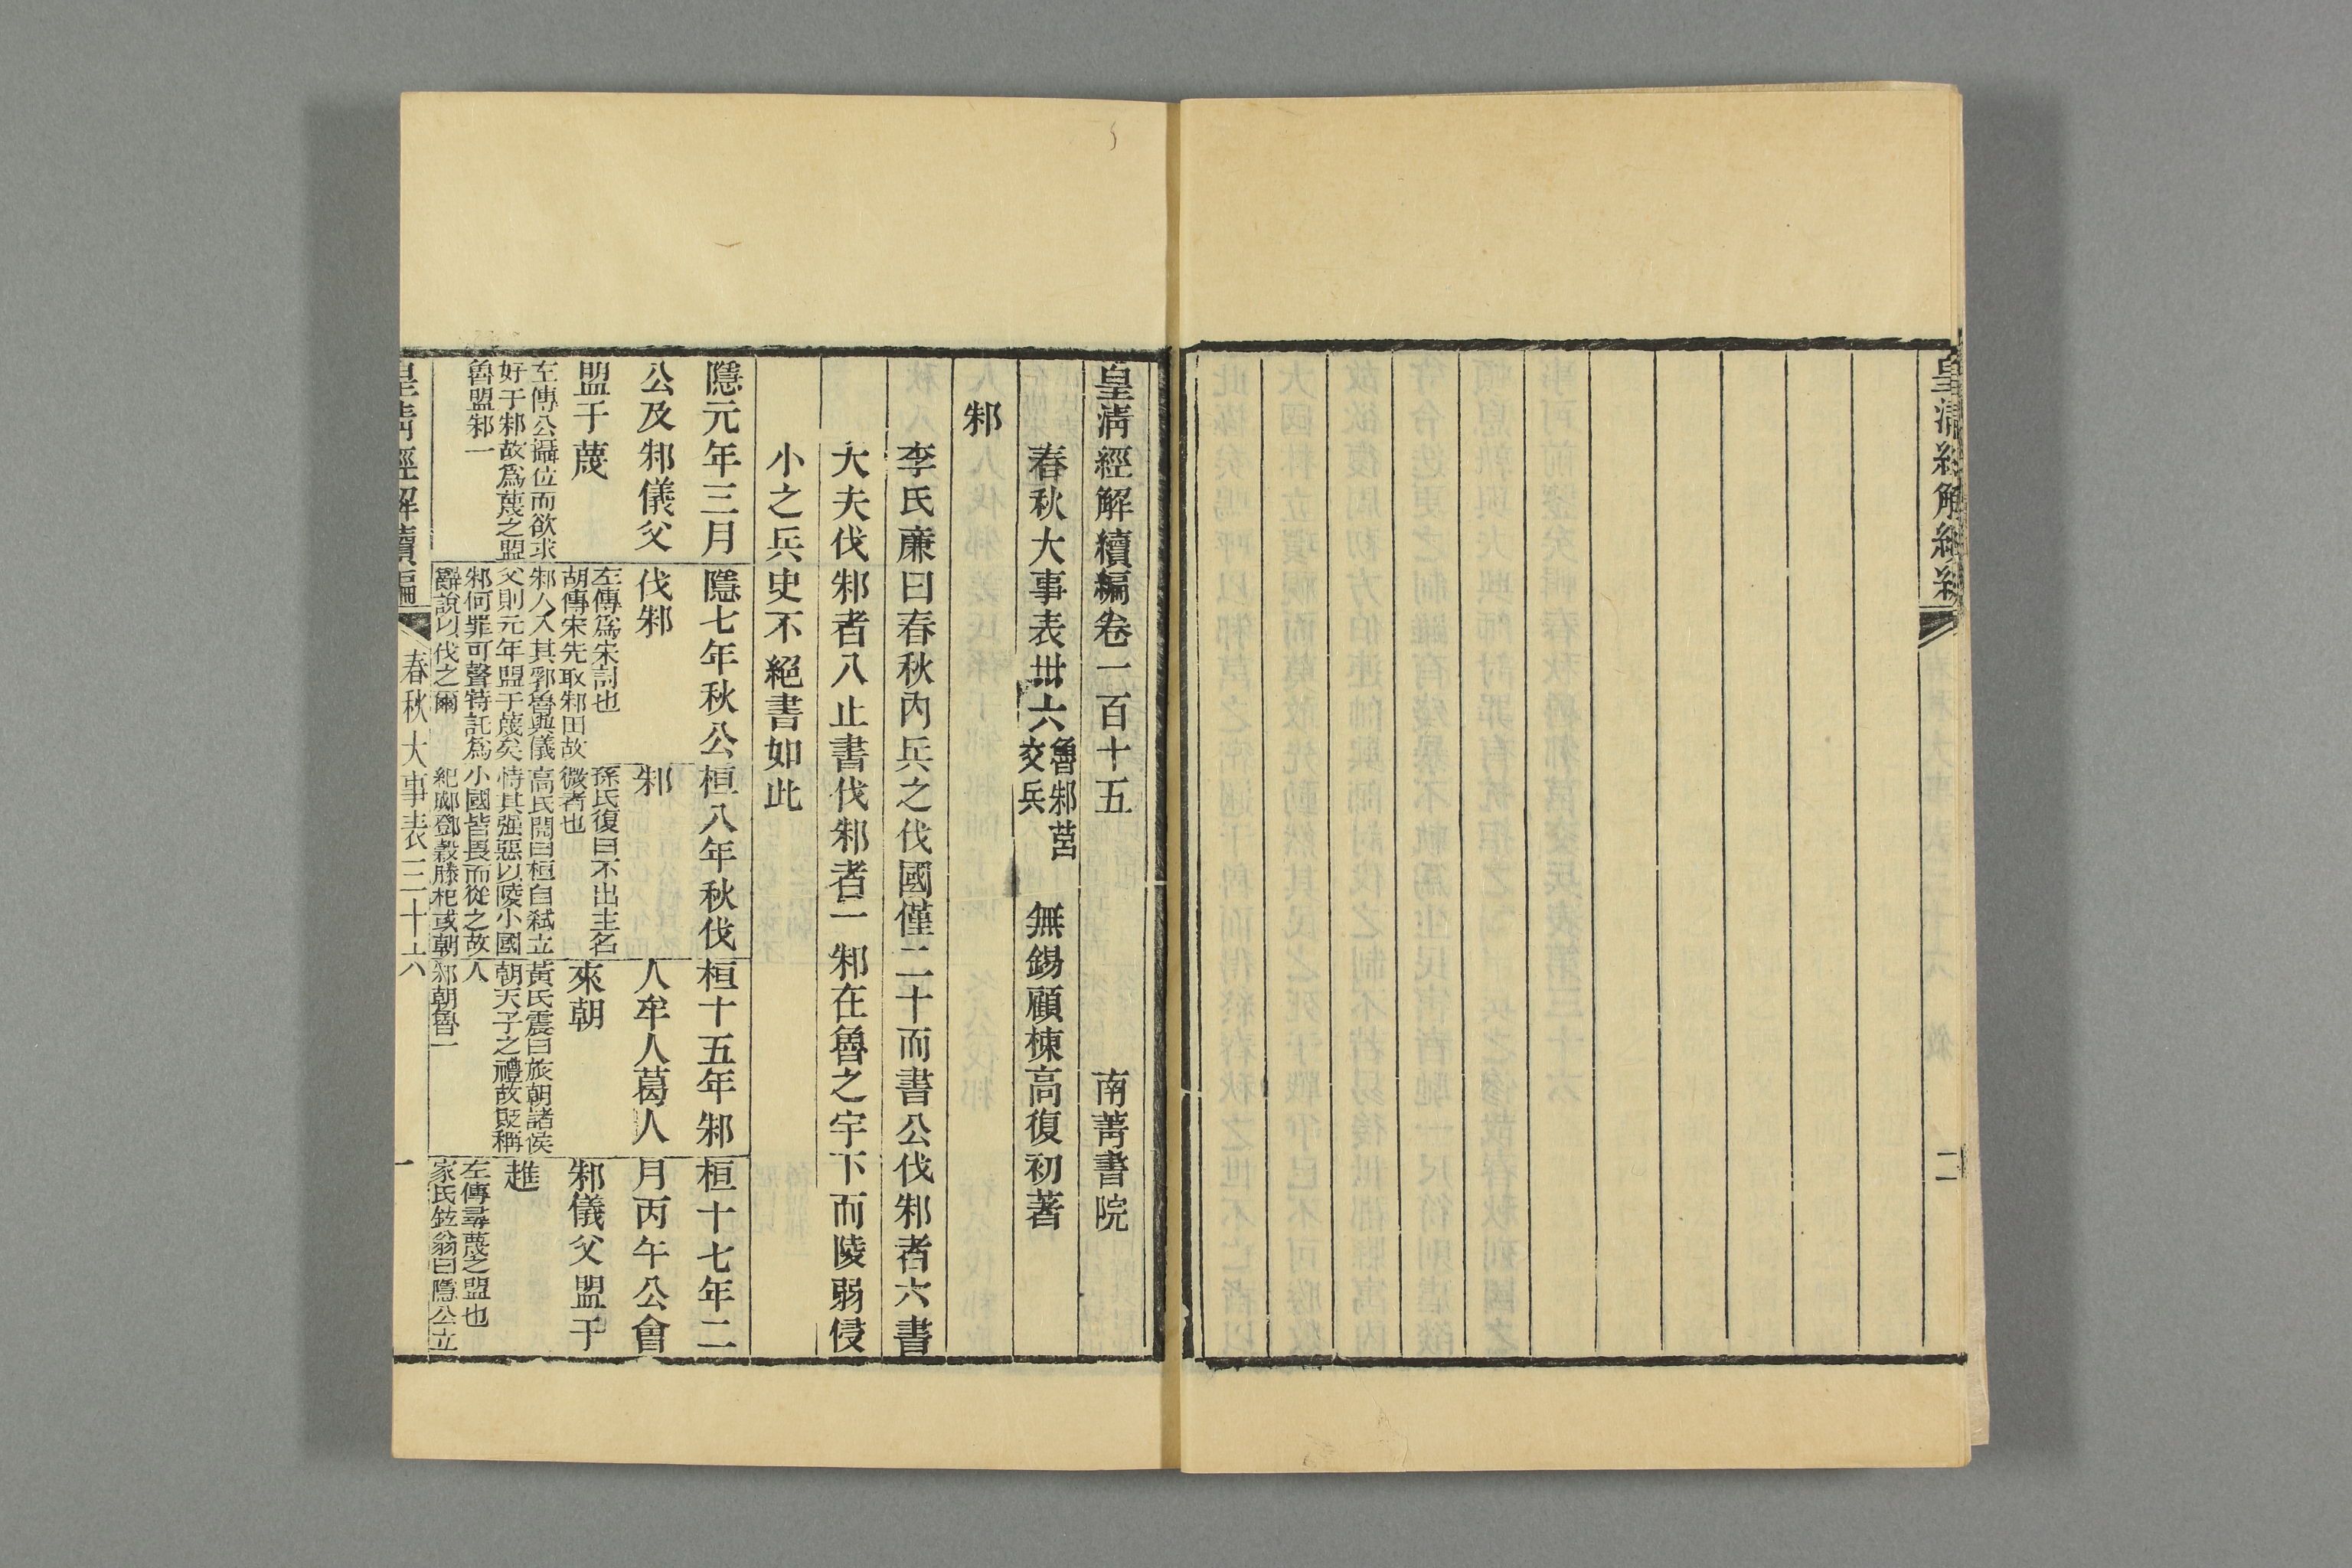 皇清經解續編
二
皇清經解續編卷一百十五
南菁書院
春秋大事表卅六
魯邾莒
交兵
無錫顧棟高復初著
邾
李氏廉曰春秋內兵之伐國僅二十而書公伐邾者六書
大夫伐邾者八止書伐邾者一邾在魯之宇下而陵弱侵
小之兵史不絕書如此
隱元年三月
公及邾儀父
盟于蔑
左傳公攝位而欲求
好于邾故爲蔑之盟
魯盟邾一
隱七年秋公
伐邾
左傳爲宋討也
胡傳宋先取邾田故
邾人入其郛魯與儀
父則元年盟于蔑矣
邾何罪可聲特託爲
辭說以伐之爾
桓八年秋伐
邾
孫氏復曰不出主名
微者也
高氏閌曰桓自弒立
恃其强惡以陵小國
小國皆畏而從之故
紀鄧穀滕杞或朝
桓十五年邾
人牟人葛人
來朝
黃氏震曰旅朝諸侯
朝天子之禮故貶稱
人
邾朝魯一
桓十七年二
月丙午公會
邾儀父盟于
趡
左傳尋蔑之盟也
家氏鉉翁曰隱公立
皇清經解續編
春秋大事表三十六
一